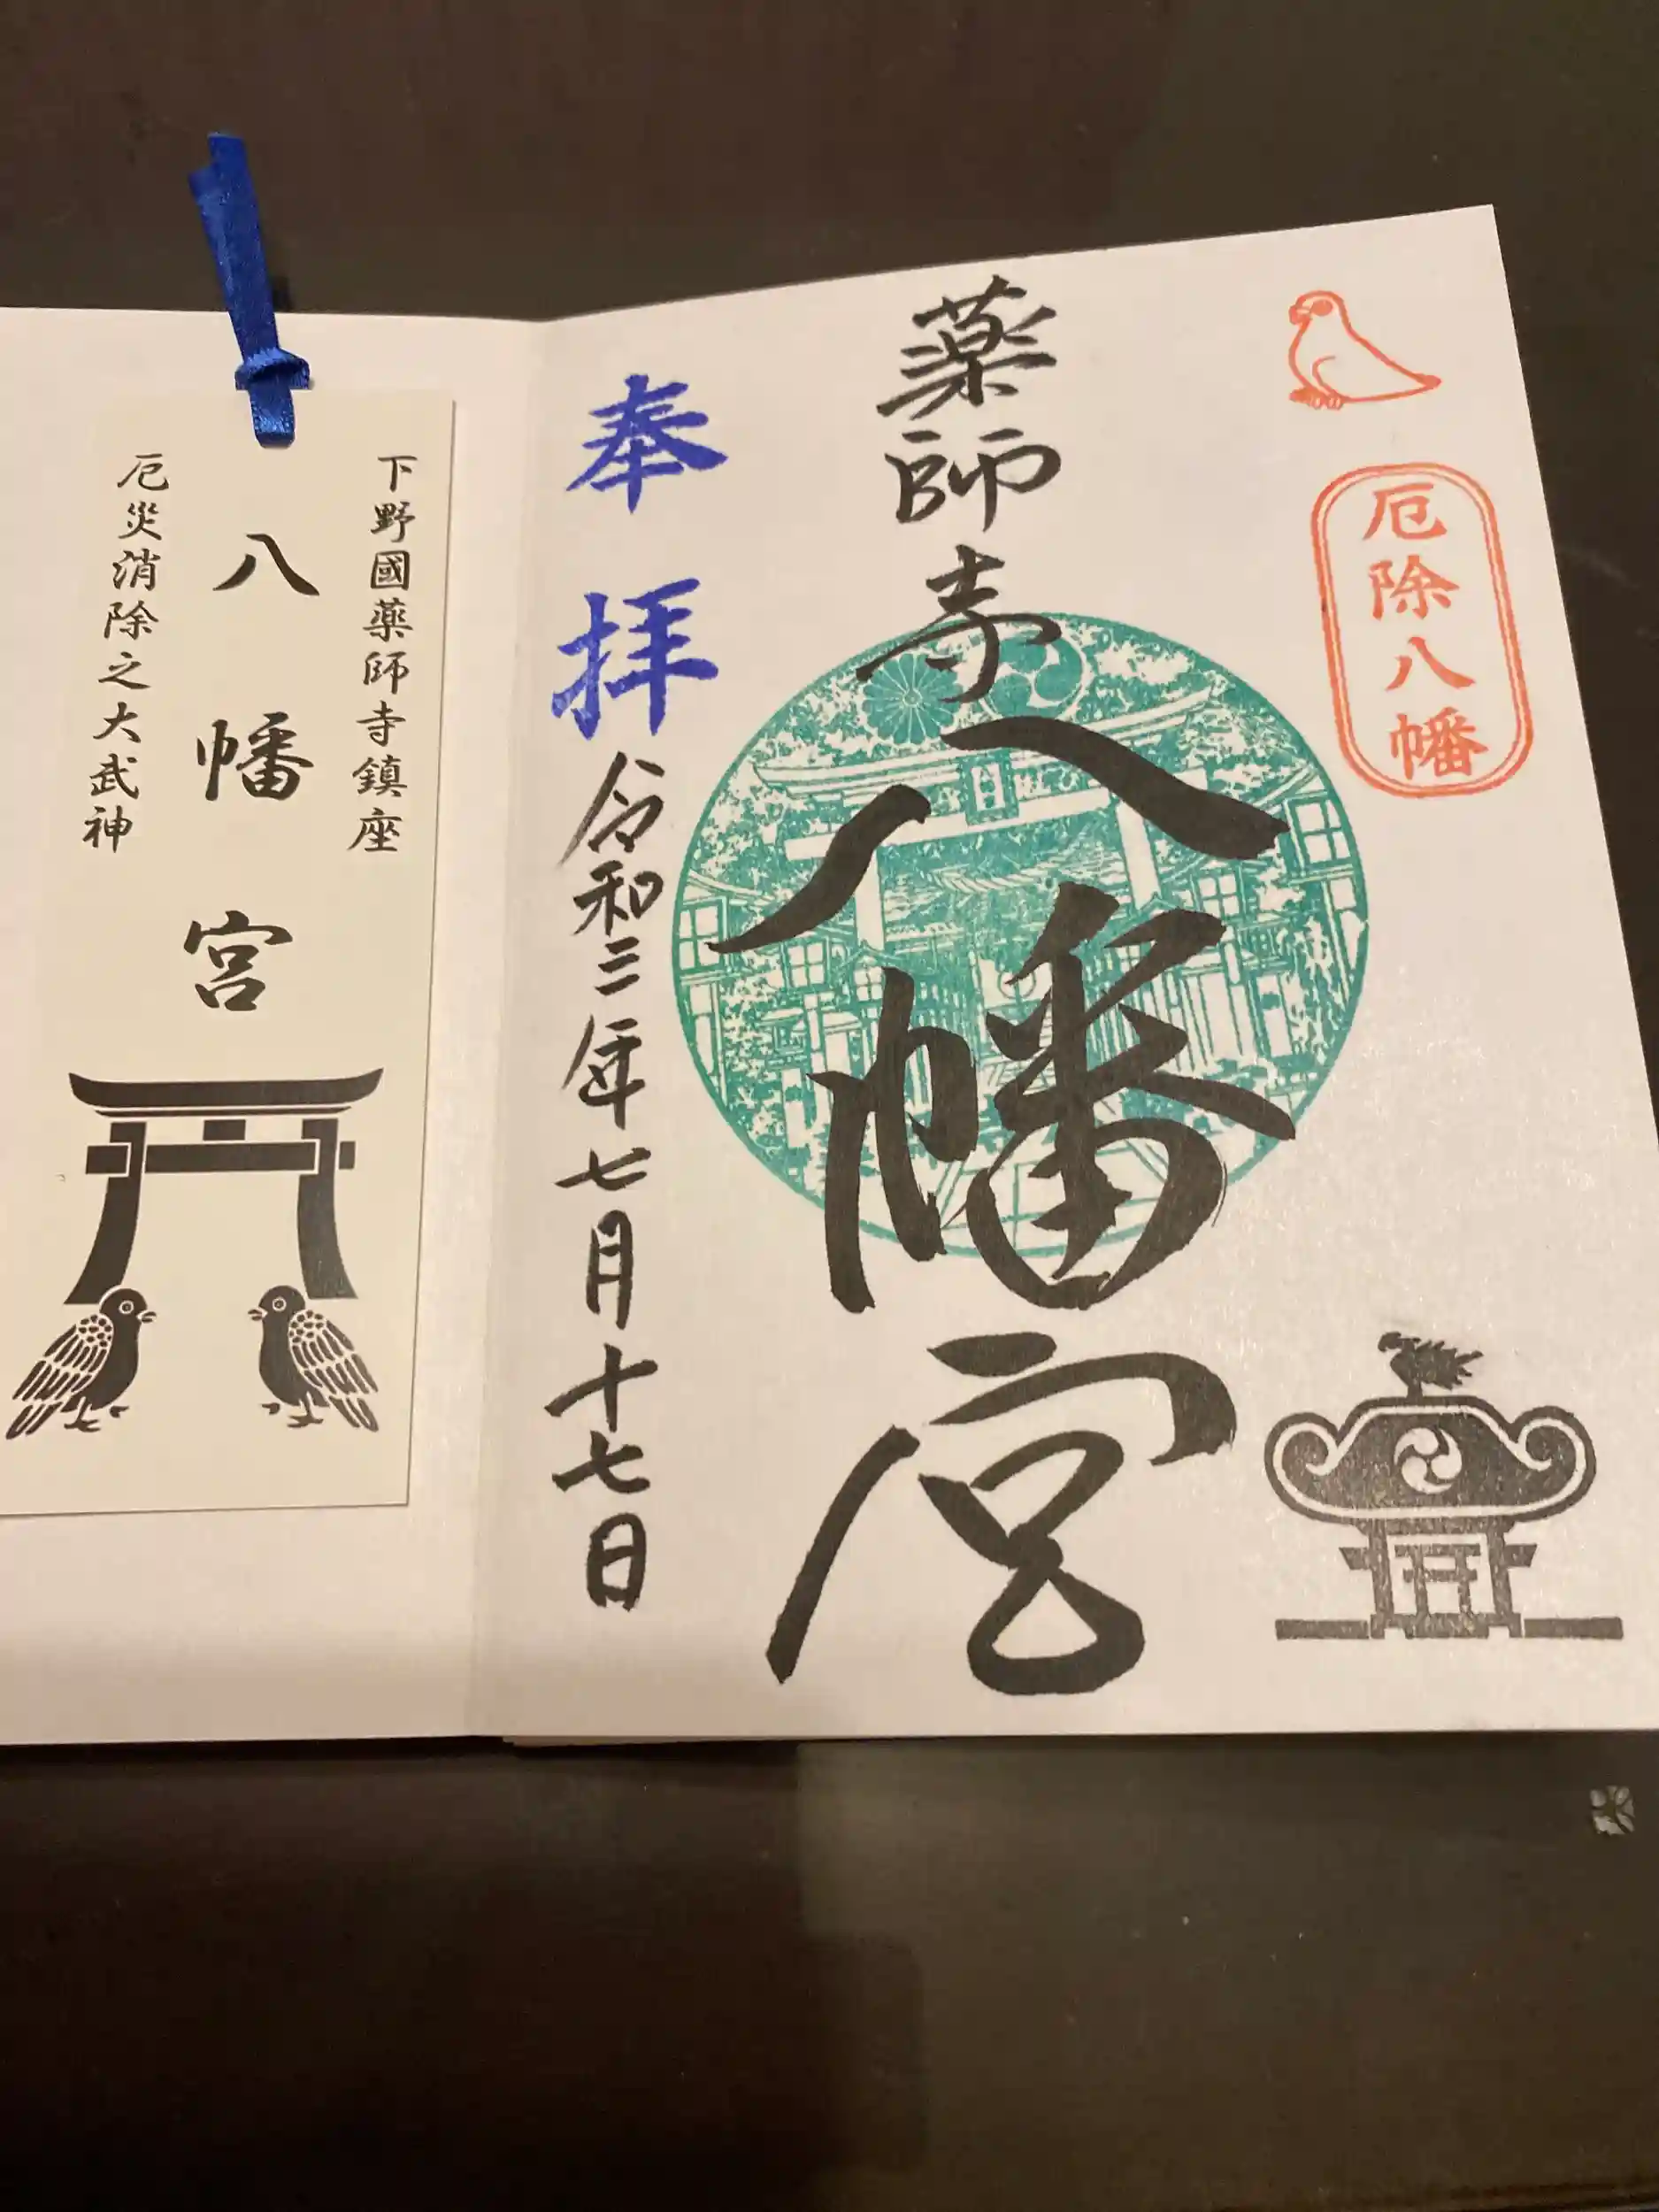 厄除八幡
薬師寺八幡宮
奉拝
令和三年七月十七日
下野國薬師寺鎮座
八幡宮
厄災消除之大武神